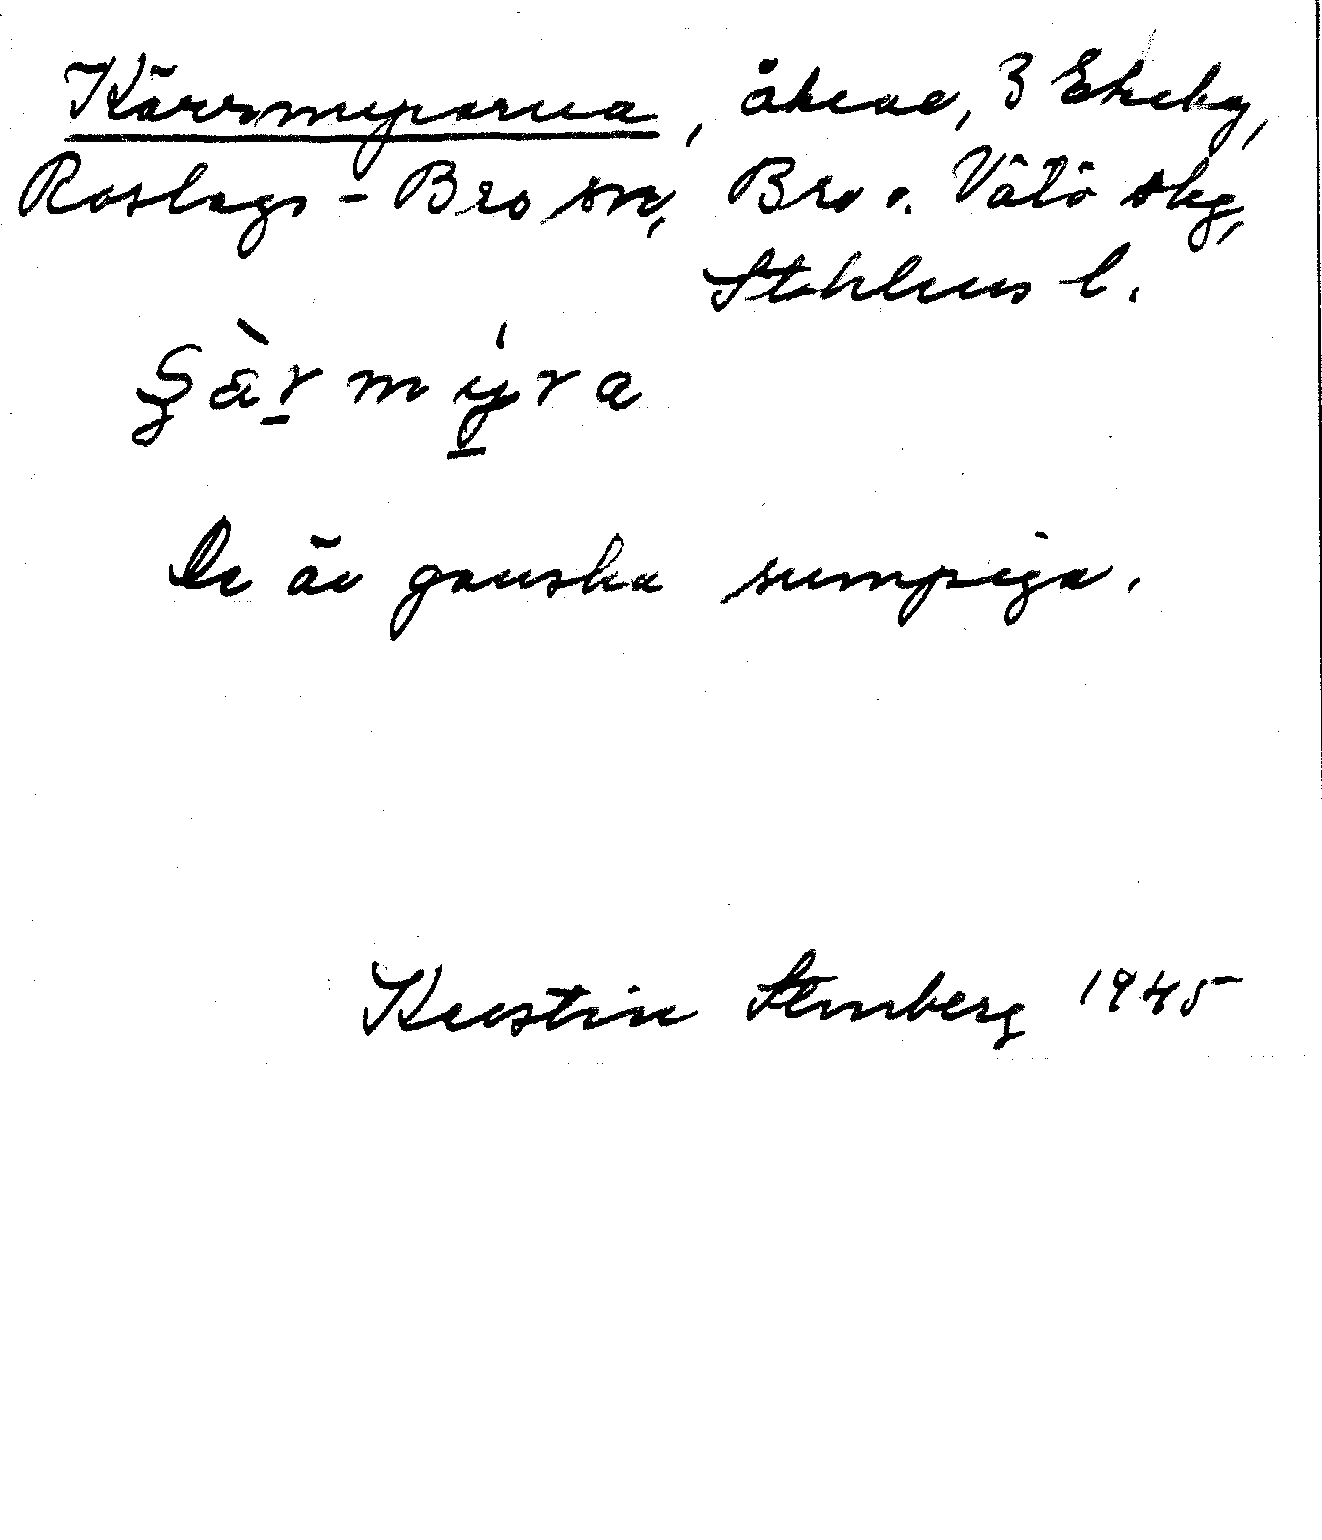 Kärrmyrarna, åkrar, 3 Ekeby,
Roslags-Bro sn, Bro o. Vätö skg,
Sthlms l.
Şä̀r̠mý̠ra
De är ganska sumpiga.
Kerstin Stenberg 1945